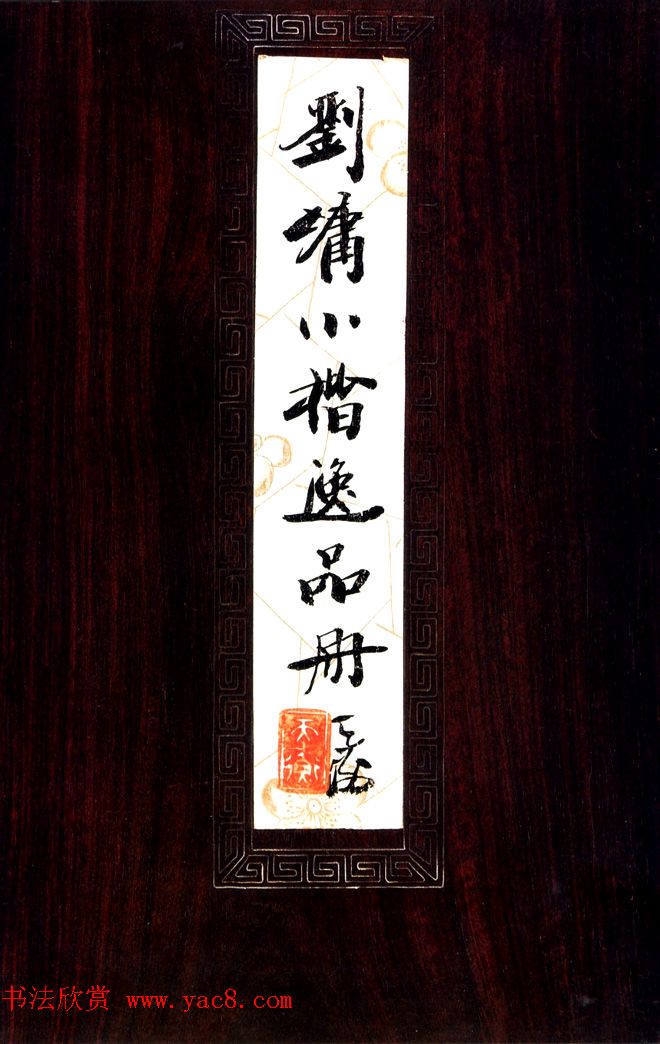 劉墉小楷逸品册
书法欣赏 www.yac8.com